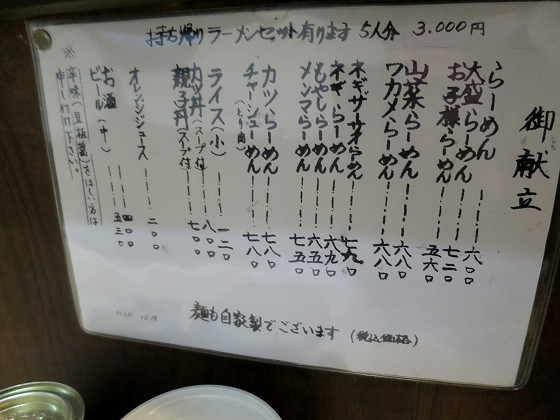 お持ち帰りラーメンセット有ります 5人分 3.000円
御献立
らーめん 六〇〇
大盛らーめん 七二〇
お子様らーめん 五六〇
山菜らーめん 六八〇
ワカメらーめん 六八〇
らーめん 七九〇
ネギらーめん 六九〇
もやしらーめん 六五〇
メンマらーめん 七五〇
カツらーめん 七八〇
チャーシューめん 七八〇
(とり肉)
ライス(小) 一二〇
カツ丼(スープ付) 八〇〇
親子丼(スープ付) 七〇〇
オレンジジュース 二〇〇
お酒 四〇〇
ビール(中) 五三〇
※辛味(豆板醤)をほしい方は
申し付け下さい。
麺も自家製でございます (税込価格)
12月